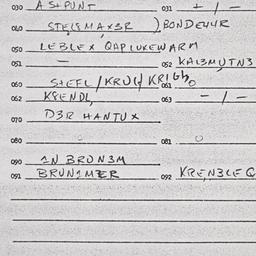 030 A S+PUNT 031 + / -
040 STELSMAX3R ) BONDE44R
050 LEBLEX QAPLUKEWARM
051 — 052 KAL3MUTN3
060 S+EFL/KRUG KRIGh 061 o
062 K8ENDL, 063 - / -
070 D3R HANTUX
080 081 o
090 1N BRUN3M
091 BRUN1MER 092 KREN3LEQ